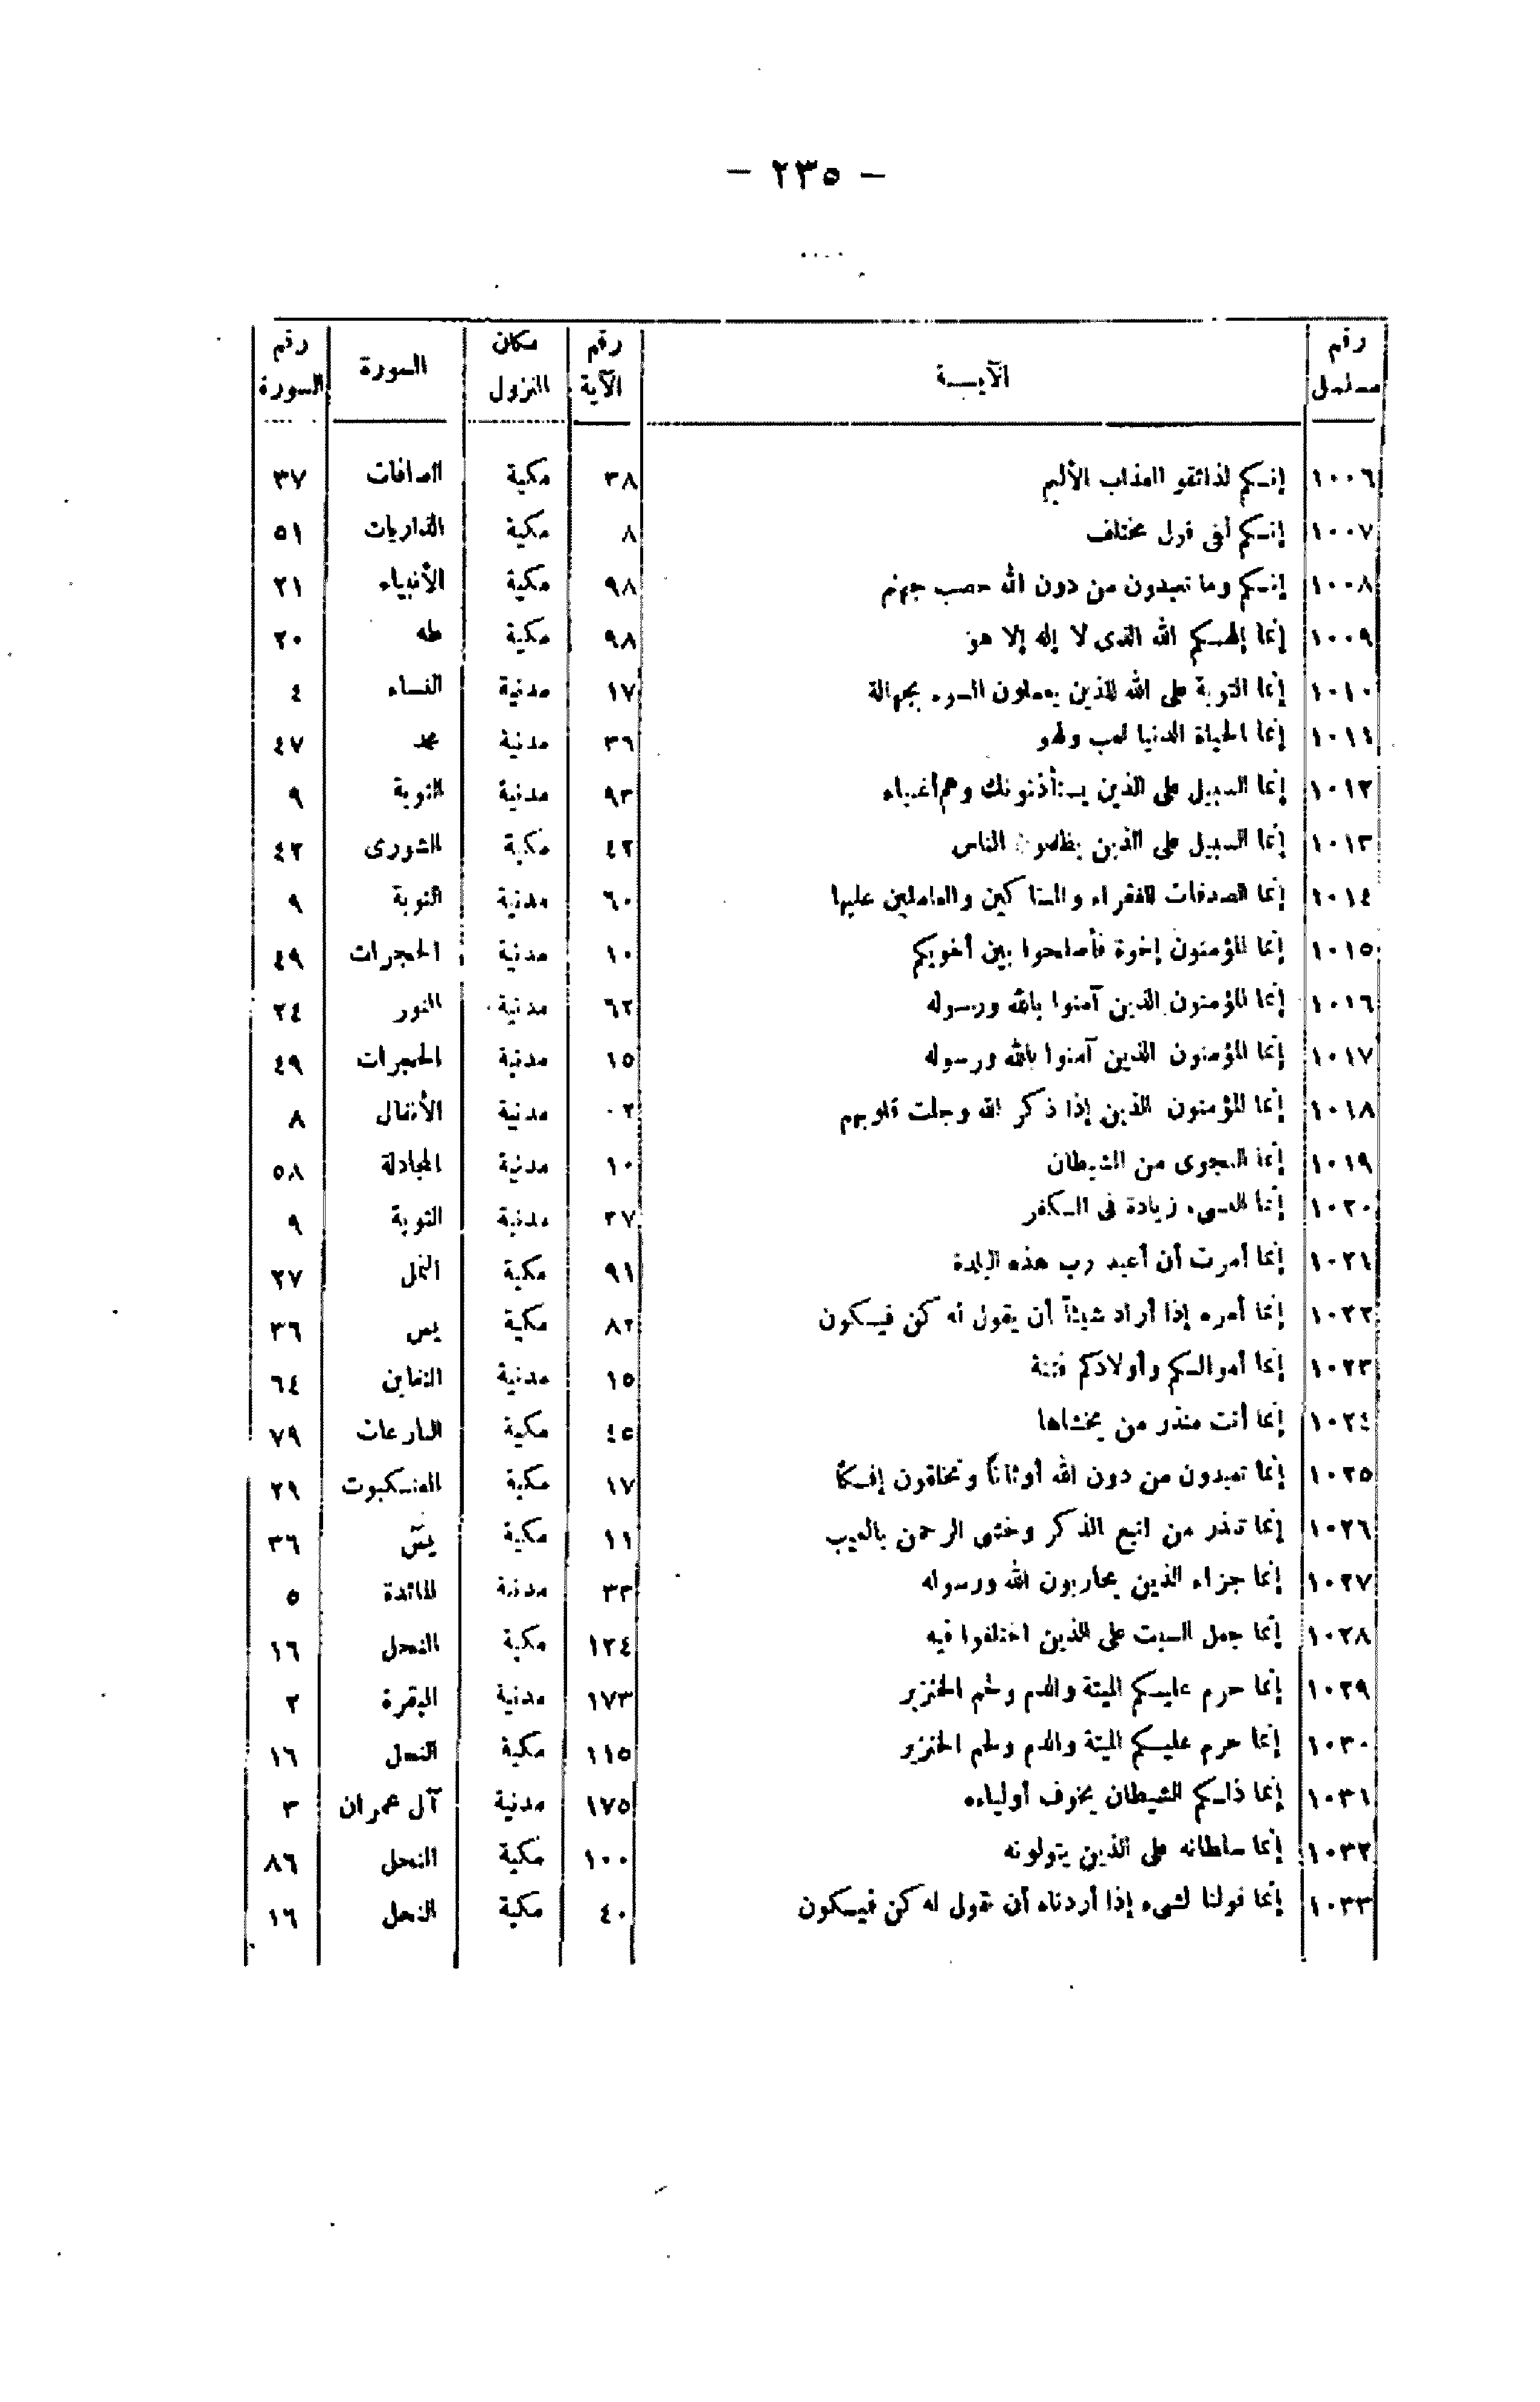 - ٢٣٥ -
رقم مسلسل | الآيــة | رقم الآية | مكان النزول | السورة | رقم السورة
١٠٠٦ | إنكم لذائقو العذاب الأليم | ٣٨ | مكية | الصافات | ٣٧
١٠٠٧ | إنكم لفى قول مختلف | ٨ | مكية | الذاريات | ٥١
١٠٠٨ | إنكم وما تعبدون من دون الله حصب جهنم | ٩٨ | مكية | الأنبياء | ٢١
١٠٠٩ | إنما إلهكم الله الذى لا إله إلا هو | ٩٨ | مكية | طه | ٢٠
١٠١٠ | إنما التوبة على الله للذين يعملون السوء بجهالة | ١٧ | مدنية | النساء | ٤
١٠١١ | إنما الحياة الدنيا لعب ولهو | ٣٦ | مدنية | محمد | ٤٧
١٠١٢ | إنما السبيل على الذين يستأذنونك وهم أغنياء | ٩٣ | مدنية | التوبة | ٩
١٠١٣ | إنما السبيل على الذين يظلمون الناس | ٤٢ | مكية | الشورى | ٤٢
١٠١٤ | إنما الصدقات للفقراء والمساكين والعاملين عليها | ٦٠ | مدنية | التوبة | ٩
١٠١٥ | إنما المؤمنون إخوة فأصلحوا بين أخويكم | ١٠ | مدنية | الحجرات | ٤٩
١٠١٦ | إنما المؤمنون الذين آمنوا بالله ورسوله | ٦٢ | مدنية | النور | ٢٤
١٠١٧ | إنما المؤمنون الذين آمنوا بالله ورسوله | ١٥ | مدنية | الحجرات | ٤٩
١٠١٨ | إنما المؤمنون الذين إذا ذكر الله وجلت قلوبهم | ٠٢ | مدنية | الأنفال | ٨
١٠١٩ | إنما النجوى من الشيطان | ١٠ | مدنية | المجادلة | ٥٨
١٠٢٠ | إنما النسىء زيادة فى الكفر | ٣٧ | مدنية | التوبة | ٩
١٠٢١ | إنما أمرت أن أعبد رب هذه البلدة | ٩١ | مكية | النمل | ٢٧
١٠٢٢ | إنما أمره إذا أراد شيئاً أن يقول له كن فيكون | ٨٢ | مكية | يس | ٣٦
١٠٢٣ | إنما أموالكم وأولادكم فتنة | ١٥ | مدنية | التغابن | ٦٤
١٠٢٤ | إنما أنت منذر من يخشاها | ٤٥ | مكية | النازعات | ٧٩
١٠٢٥ | إنما تعبدون من دون الله أوثاناً وتخلقون إفكاً | ١٧ | مكية | العنكبوت | ٢٩
١٠٢٦ | إنما تنذر من اتبع الذكر وخشى الرحمن بالغيب | ١١ | مكية | يس | ٣٦
١٠٢٧ | إنما جزاء الذين يحاربون الله ورسوله | ٣٣ | مدنية | المائدة | ٥
١٠٢٨ | إنما جعل السبت على الذين اختلفوا فيه | ١٢٤ | مكية | النحل | ١٦
١٠٢٩ | إنما حرم عليكم الميتة والدم ولحم الخنزير | ١٧٣ | مدنية | البقرة | ٢
١٠٣٠ | إنما حرم عليكم الميتة والدم ولحم الخنزير | ١١٥ | مكية | النحل | ١٦
١٠٣١ | إنما ذلكم الشيطان يخوف أولياءه | ١٧٥ | مدنية | آل عمران | ٣
١٠٣٢ | إنما سلطانه على الذين يتولونه | ١٠٠ | مكية | النحل | ٨٦
١٠٣٣ | إنما قولنا لشىء إذا أردناه أن نقول له كن فيكون | ٤٠ | مكية | النحل | ١٦